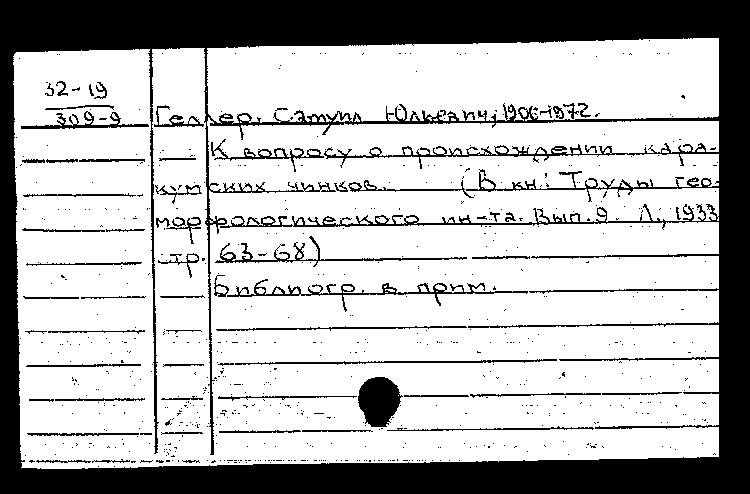 32-19
309-9
Геллер, Самуил Юльевич, 1906-1972.
К вопросу о происхождении кара-
кумских чинков. (В кн.: Труды гео-
морфологического ин-та. Вып. 9. Л., 1933
стр. 63-68)
Библиогр. в прим.